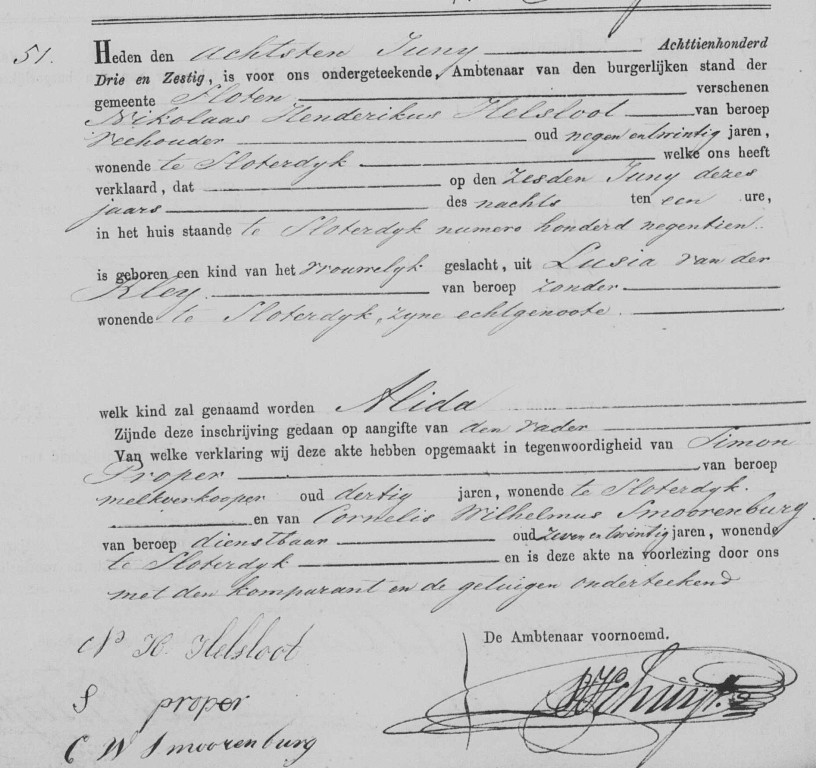 51.
Heden den achtsten Juny Achttienhonderd
Drie en Zestig, is voor ons ondergeteekende, Ambtenaar van den burgerlijken stand der
gemeente Sloten verschenen
Nikolaas Henderikus Helsloot van beroep
veehouder oud negen en twintig jaren,
wonende te Sloterdyk welke ons heeft
verklaard, dat op den zesden Juny dezes
jaars des nachts ten een ure,
in het huis staande te Sloterdyk numero honderd negentien
is geboren een kind van het vrouwelyk geslacht, uit Lusia van der
Kley van beroep zonder
wonende te Sloterdyk, zyne echtgenoote
welk kind zal genaamd worden Alida
Zijnde deze inschrijving gedaan op aangifte van den vader
Van welke verklaring wij deze akte hebben opgemaakt in tegenwoordigheid van Simon
Proper van beroep
melkverkooper oud dertig jaren, wonende te Sloterdyk.
en van Cornelis Wilhelmus Smoorenburg
van beroep dienstbaar oud zeven en twintig jaren, wonende
te Sloterdyk en is deze akte na voorlezing door ons
met den komparant en de getuigen onderteekend
De Ambtenaar voornoemd.
N H Helsloot
S proper
C W Smoorenburg